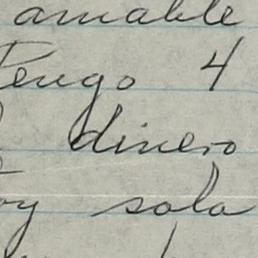 amable
Tengo 4
dinero
oy sola